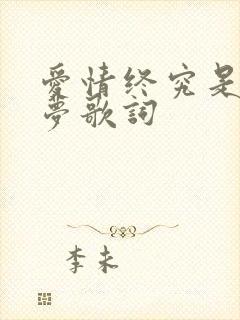 愛情终究是
夢歌詞
李未